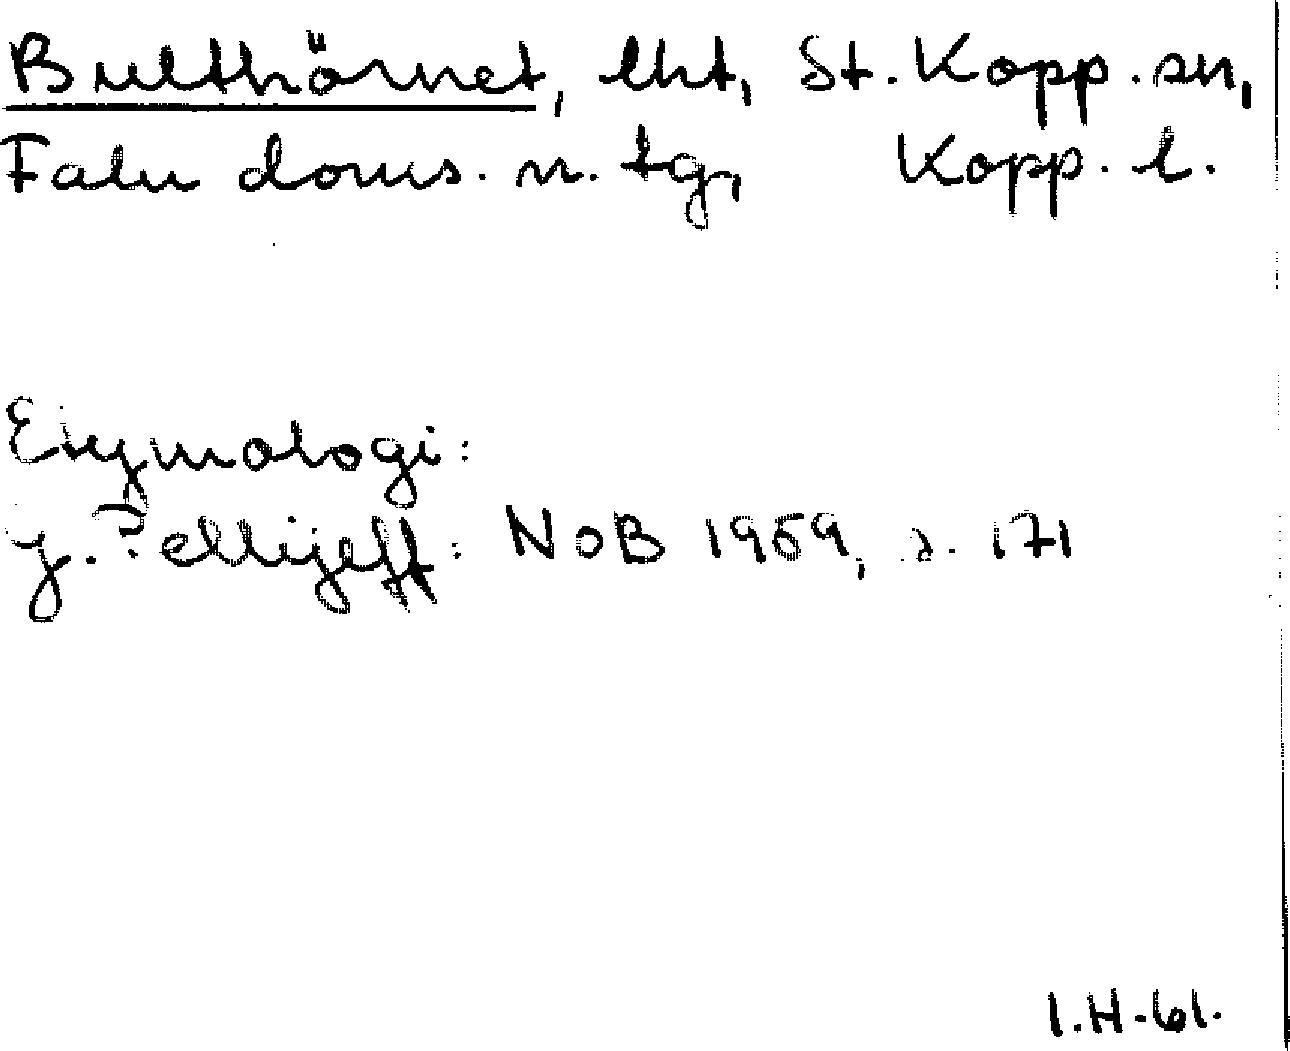 Bulthörnet, lht, St. Kopp. sn,
Falu doms. n. tg, Kopp. l.
Etymologi:
G. Pellijeff: NoB 1959, s. 171
I.H-61.